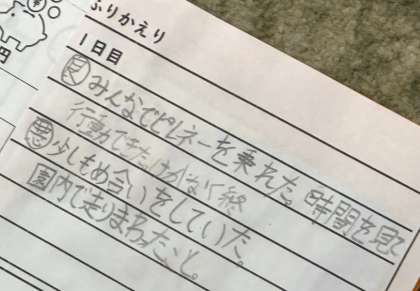 円
ふりかえり
1日目
良 みんなでピネーを乗れた。時間を見て
行動できた。けがなく終
悪 少しもめ合いをしていた。
園内で走りまわったこと。